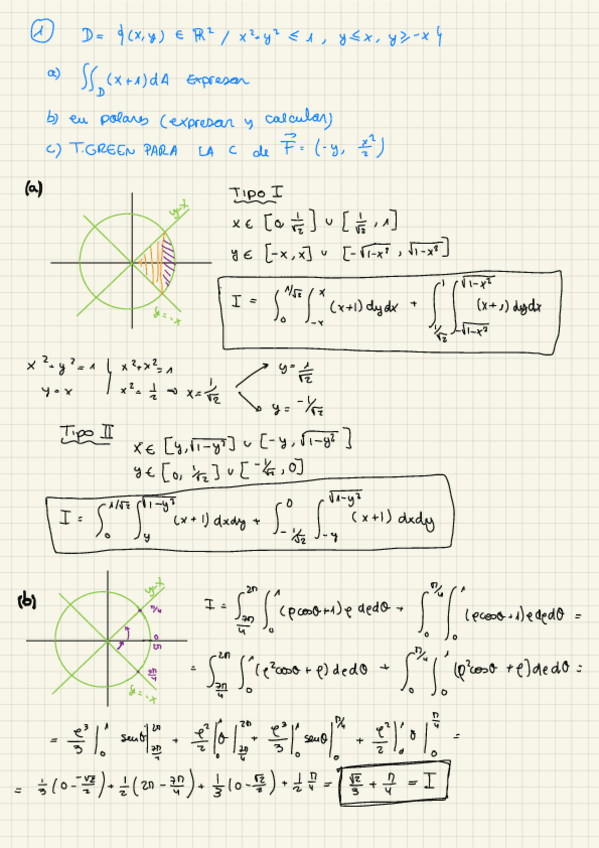 1 D = {(x,y) ∈ ℝ² / x²+y² ≤ 1, y≤x, y≥-x}
a) ∬_D (x+1)dA expresar
b) en polares (expresar y calcular)
c) T.GREEN PARA LA C de F⃗ = (-y, x²/2)
(a)
y=x
y=-x
TIPO I
x ∈ [0, 1/√2] ∪ [1/√2, 1]
y ∈ [-x, x] ∪ [-√1-x², √1-x²]
I = ∫_0^{1/√2} ∫_{-x}^{x} (x+1) dydx + ∫_{1/√2}^{1} ∫_{-√1-x²}^{√1-x²} (x+1) dydx
x²+y²=1 } x²+x²=1
y=x } x²=1/2 ⇒ x=1/√2
y=1/√2
y=-1/√2
TIPO II
x ∈ [y, √1-y²] ∪ [-y, √1-y²]
y ∈ [0, 1/√2] ∪ [-1/√2, 0]
I = ∫_0^{1/√2} ∫_y^{√1-y²} (x+1) dxdy + ∫_{-1/√2}^0 ∫_{-y}^{√1-y²} (x+1) dxdy
(b)
y=x
π/4
0
2π
7π/4
y=-x
I = ∫_{7π/4}^{2π} ∫_0^1 (ρcosθ+1)ρ dρdθ + ∫_0^{π/4} ∫_0^1 (ρcosθ+1)ρ dρdθ =
= ∫_{7π/4}^{2π} ∫_0^1 (ρ²cosθ + ρ) dρdθ + ∫_0^{π/4} ∫_0^1 (ρ²cosθ + ρ) dρdθ =
= ρ³/3 |_0^1 senθ |_{7π/4}^{2π} + ρ²/2 |_0^1 θ |_{7π/4}^{2π} + ρ³/3 |_0^1 senθ |_0^{π/4} + ρ²/2 |_0^1 θ |_0^{π/4} =
= 1/3 (0 - -√2/2) + 1/2 (2π - 7π/4) + 1/3 (0 - √2/2) + 1/2 π/4 = √2/3 + π/4 = I